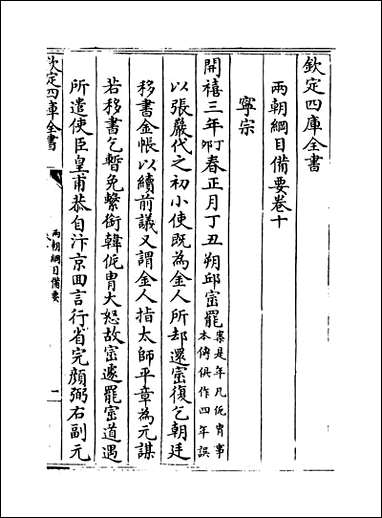 欽定四庫全書
兩朝綱目備要卷十
寧宗
開禧三年丁卯春正月丁丑朔邱崈罷案是年凡侂胄事本俱作四年誤
以張嚴代之初小使既為金人所却還崈復乞朝廷
移書金帳以續前議又謂金人指太師平章為元謀
若移書乞暫免繫銜韓侂胄大怒故崈遽罷崈道遇
所遣使臣皇甫恭自汴京回言行省完顔弼右副元
欽定四庫全書
兩朝綱目備要